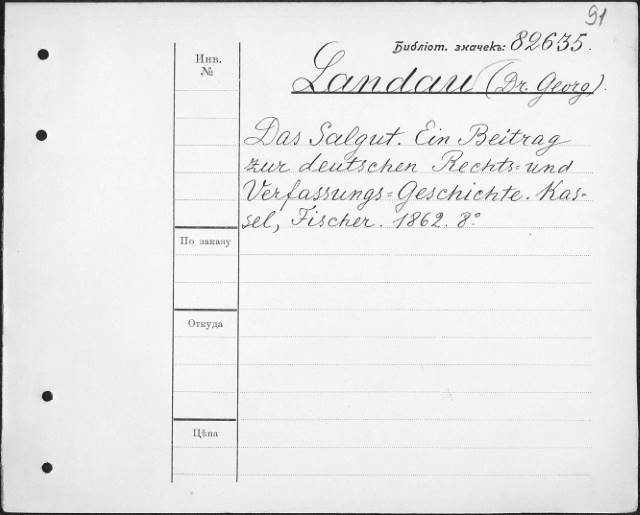 91
Библіот. значекъ: 82635.
Инв.
№
Landau (Dr. Georg).
Das Salgut. Ein Beitrag
zur deutschen Rechts= und
Verfassungs=Geschichte. Kas-
sel, Fischer. 1862. 8°
По заказу
Откуда
Цѣна